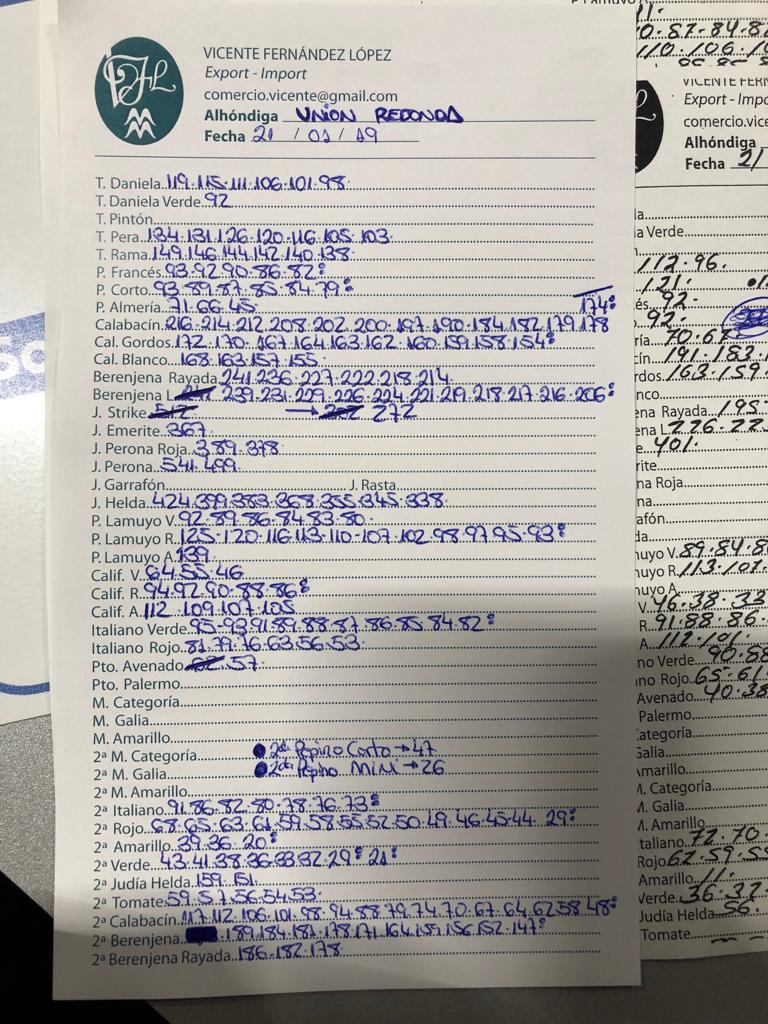 VICENTE FERNÁNDEZ LÓPEZ
Export - Import
comercio.vicente@gmail.com
Alhóndiga UNION REDONDA
Fecha 21 / 01 / 19
T. Daniela 119.115.111.106.101.98.
T. Daniela Verde 92
T. Pintón
T. Pera 134.131.126.120.116.105.103
T. Rama 149.146.144.142.140.138
P. Francés 93.92.90.86.82:
P. Corto 93.89.87.85.84.79:
P. Almería 71.66.45 174:
Calabacín 216.214.212.208.202.200.197.190.184.182.179.178
Cal. Gordos 172.170.167.164.163.162.160.159.158.154:
Cal. Blanco 168.163.157.155
Berenjena Rayada 241.236.227.222.218.214
Berenjena L 239.231.229.226.224.221.219.218.217.216.206:
J. Strike 272
J. Emerite 367
J. Perona Roja 389.378
J. Perona 541.499
J. Garrafón J. Rasta
J. Helda 424.399.383.368.355.345.338
P. Lamuyo V. 92.89.86.84.83.80
P. Lamuyo R. 125.120.116.113.110.107.102.98.97.95.93:
P. Lamuyo A. 139
Calif. V. 64.55.46
Calif. R. 94.92.90.88.86:
Calif. A. 112.109.107.105
Italiano Verde 95.93.91.89.88.87.86.85.84.82:
Italiano Rojo 81.79.76.63.56.53
Pto. Avenado 57
Pto. Palermo
M. Categoría
M. Galia
M. Amarillo
2ª M. Categoría 2da Pepino Corto → 47
2ª M. Galia 2da Pepino Mini → 26
2ª M. Amarillo
2ª Italiano 91.86.82.80.78.76.73:
2ª Rojo 68.65.63.61.59.58.55.52.50.49.46.45.44.29:
2ª Amarillo 39.36.20:
2ª Verde 43.41.38.36.33.32.29:21:
2ª Judía Helda 159.151
2ª Tomate 59.57.56.54.53
2ª Calabacín 117.112.106.101.98.94.88.79.74.70.67.64.62.58.48:
2ª Berenjena 189.184.181.178.171.164.159.156.152.147:
2ª Berenjena Rayada 186.182.178
VICENTE FERN
Export - Impo
comercio.vice
Alhóndiga
Fecha 21/
a Verde
112.96.
121.
92.
92.
70.67
191.183.1
rdos 163.159.
nco
ena Rayada 195
ena L 226.22
401.
rite
na Roja
na
afón
da
uyo V. 89.84.8
uyo R. 113.107.
nuyo A.
V. 46.38.33
R. 91.88.86.
A. 112.101.
no Verde 90.88
no Rojo 65.61
Avenado 40.38
Palermo
ategoría
Galia
marillo
M. Categoría
M. Galia
M. Amarillo
taliano 72.70.
Rojo 62.59.5
Amarillo 11.
Verde 36.32
Judía Helda 56.
Tomate